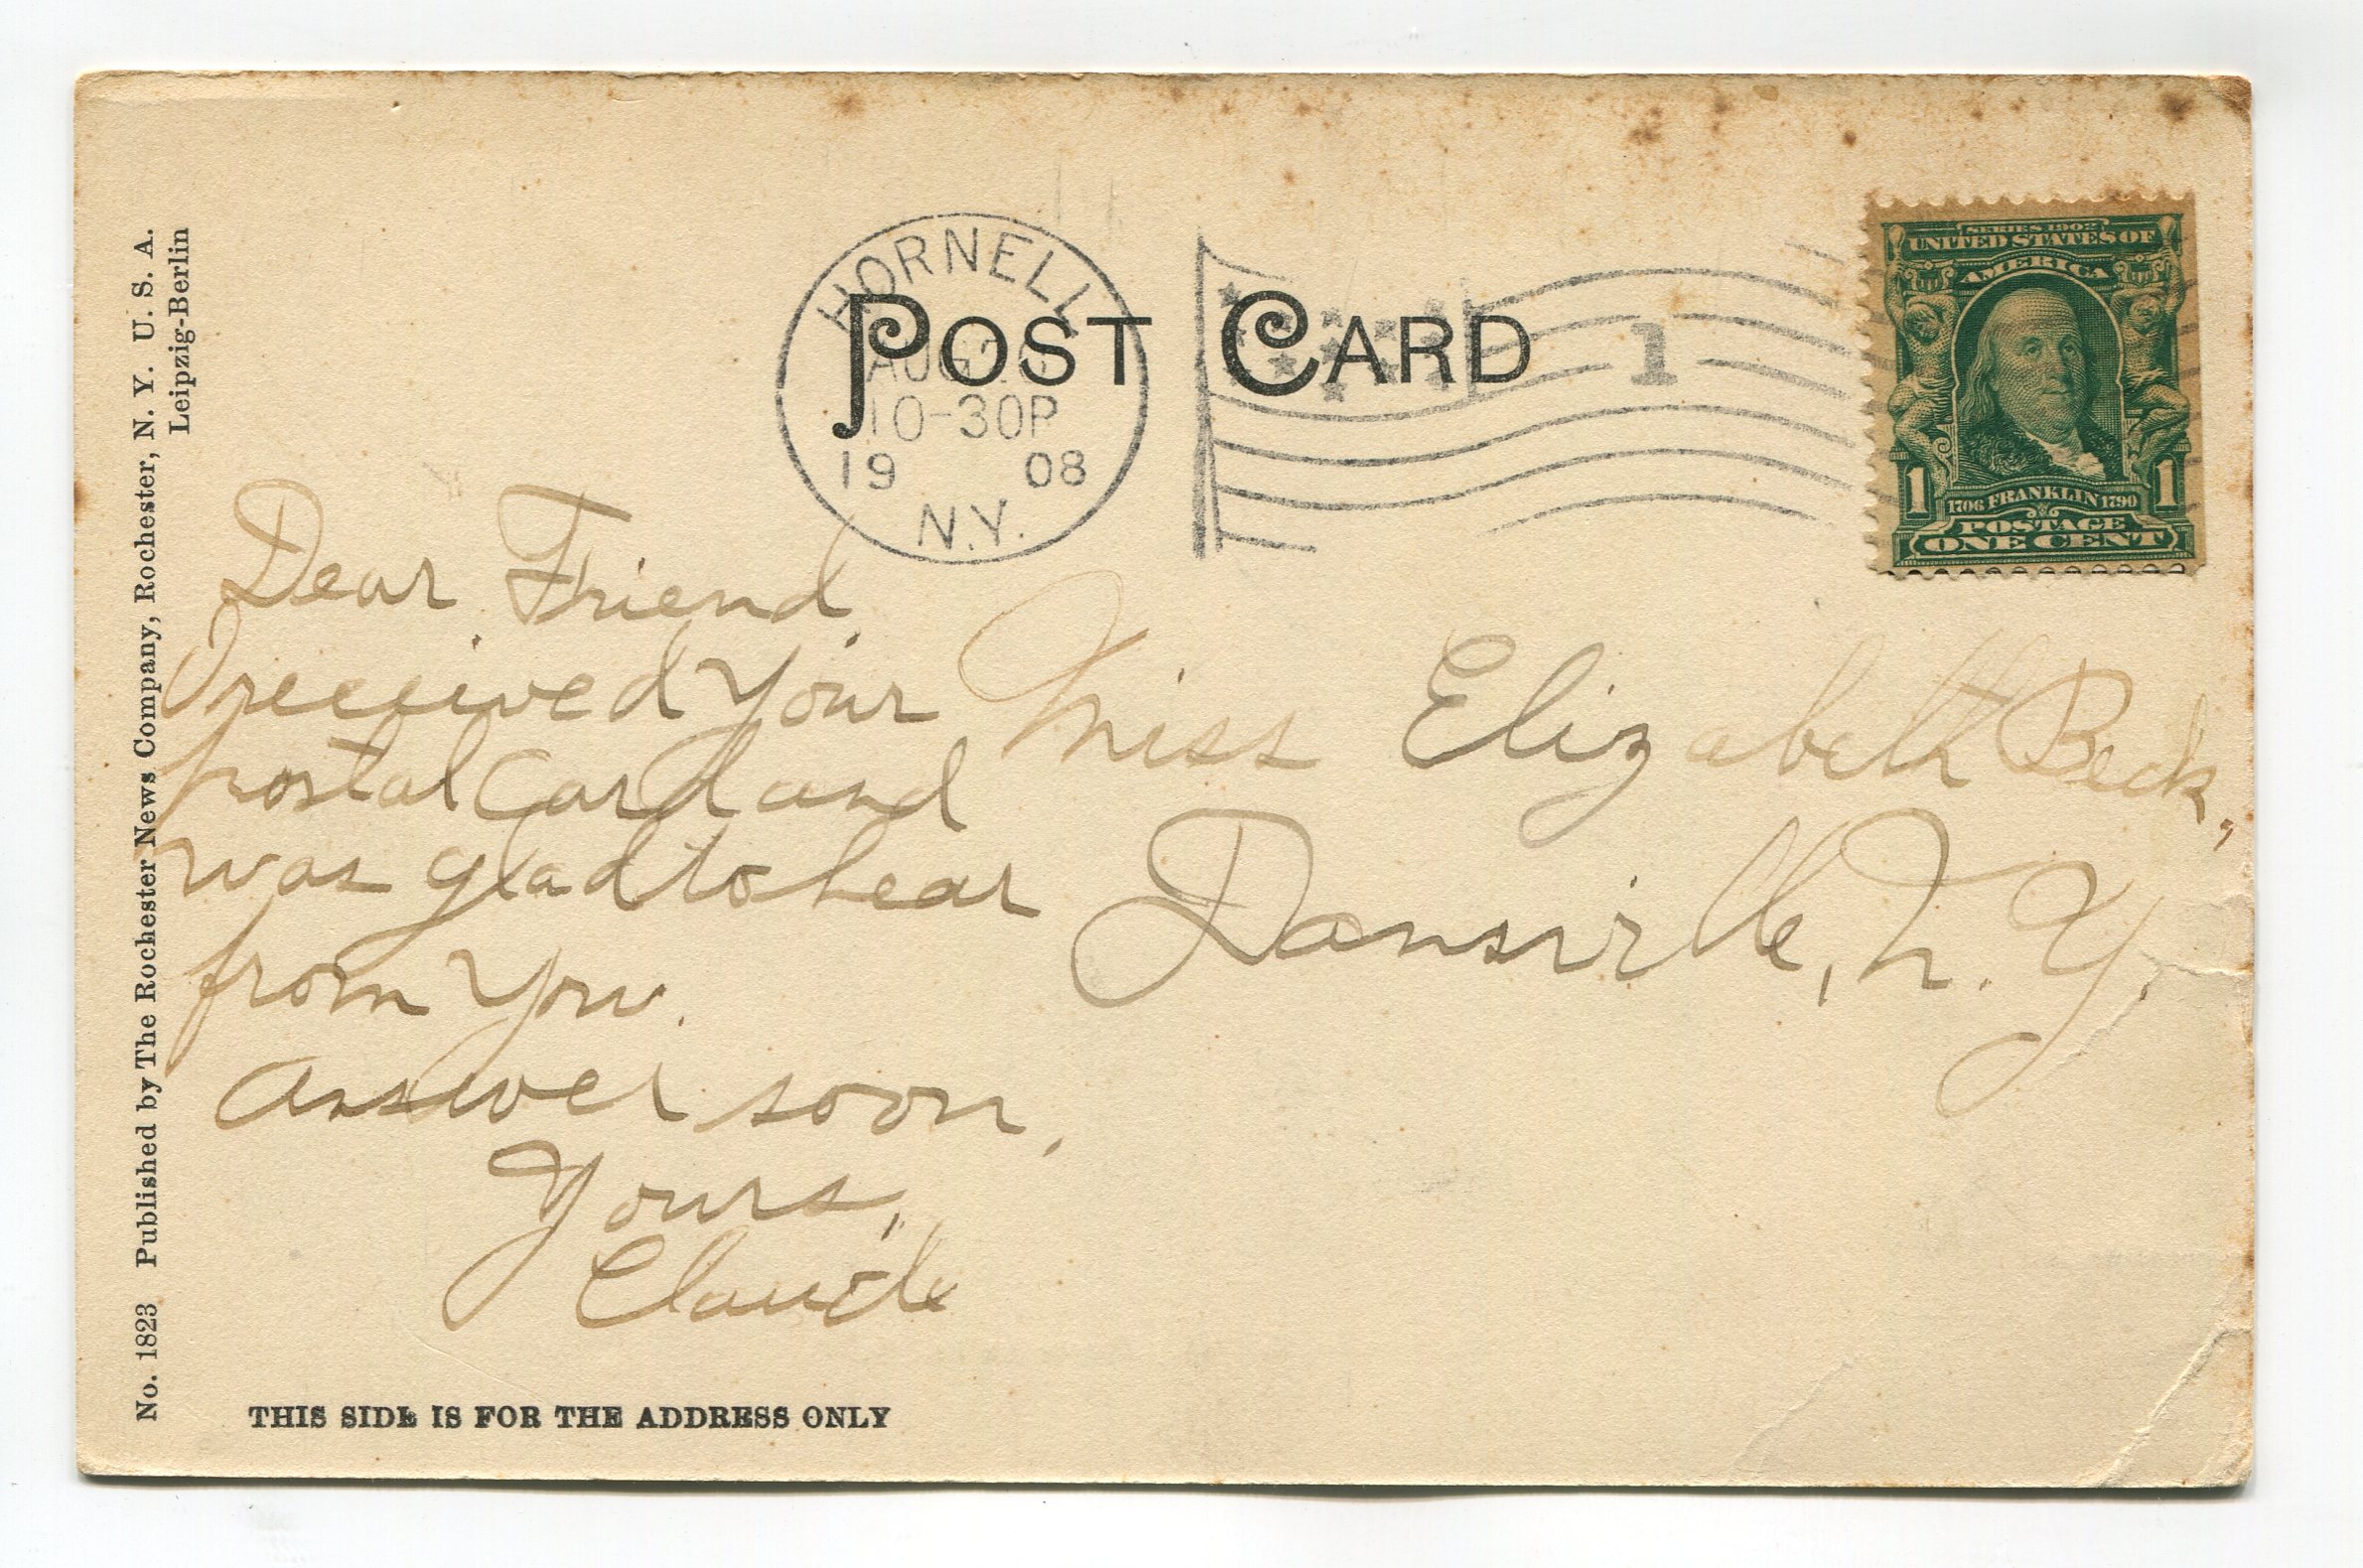 POST CARD
HORNELL
AUG
10-30P
19 08
N.Y.
1
SERIES 1902
UNITED STATES OF
AMERICA
1 1706 FRANKLIN 1790 1
POSTAGE
ONE CENT
Dear Friend,
I received your
postal card and
was glad to hear
from you.
answer soon.
Yours,
Claude
Miss Elizabeth Beck,
Dansville, N. Y.
THIS SIDE IS FOR THE ADDRESS ONLY
No. 1823 Published by The Rochester News Company, Rochester, N. Y. U. S. A.
Leipzig-Berlin